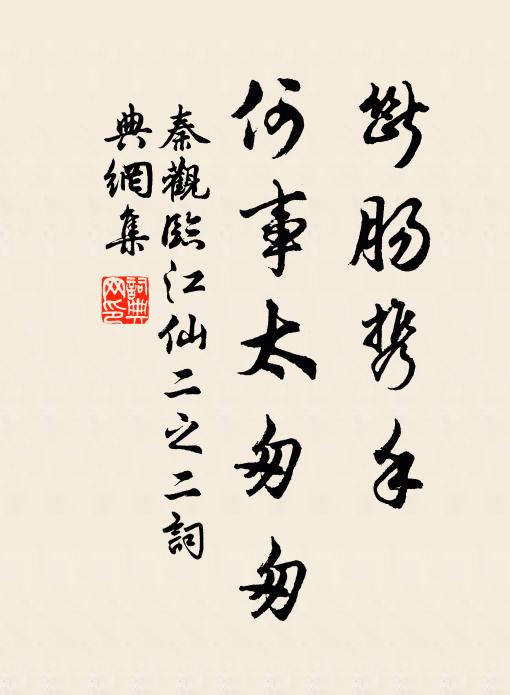 断肠携手
何事太匆匆
秦觀臨江仙二之二詞
典網集
詞典网印